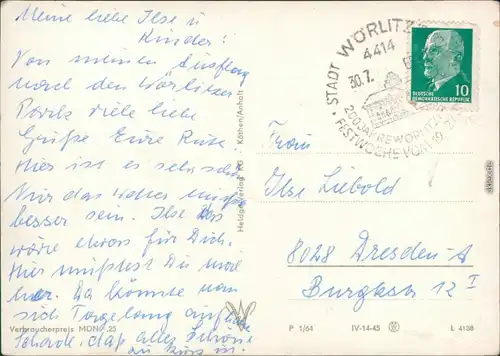 Meine liebe Ilse u
Kinder!
Von meinem Ausflug
nach den Wörlitzer
Park viele liebe
Grüße Eure Rose.
Hier ist es sehr schön
Nur das Wetter müßte
besser sein. Ilse das
wäre etwas für Dich.
Hier müßtest Du mal
her. Da könnte man
sich Tagelang aufhalten
Schade, daß alles Schöne
zu kurz ist.
Verbraucherpreis MDN -,25
Heldge-Verlag KG · Köthen/Anhalt
STADT WÖRLITZ
4414
30.7.
200 JAHRE WÖRLITZER
FESTWOCHE VOM
DEUTSCHE
DEMOKRATISCHE REPUBLIK
10
Frau
Ilse Liebold
8028 Dresden-A
Burgkstr 12 I
P 1/64 IV-14-45 L 4138